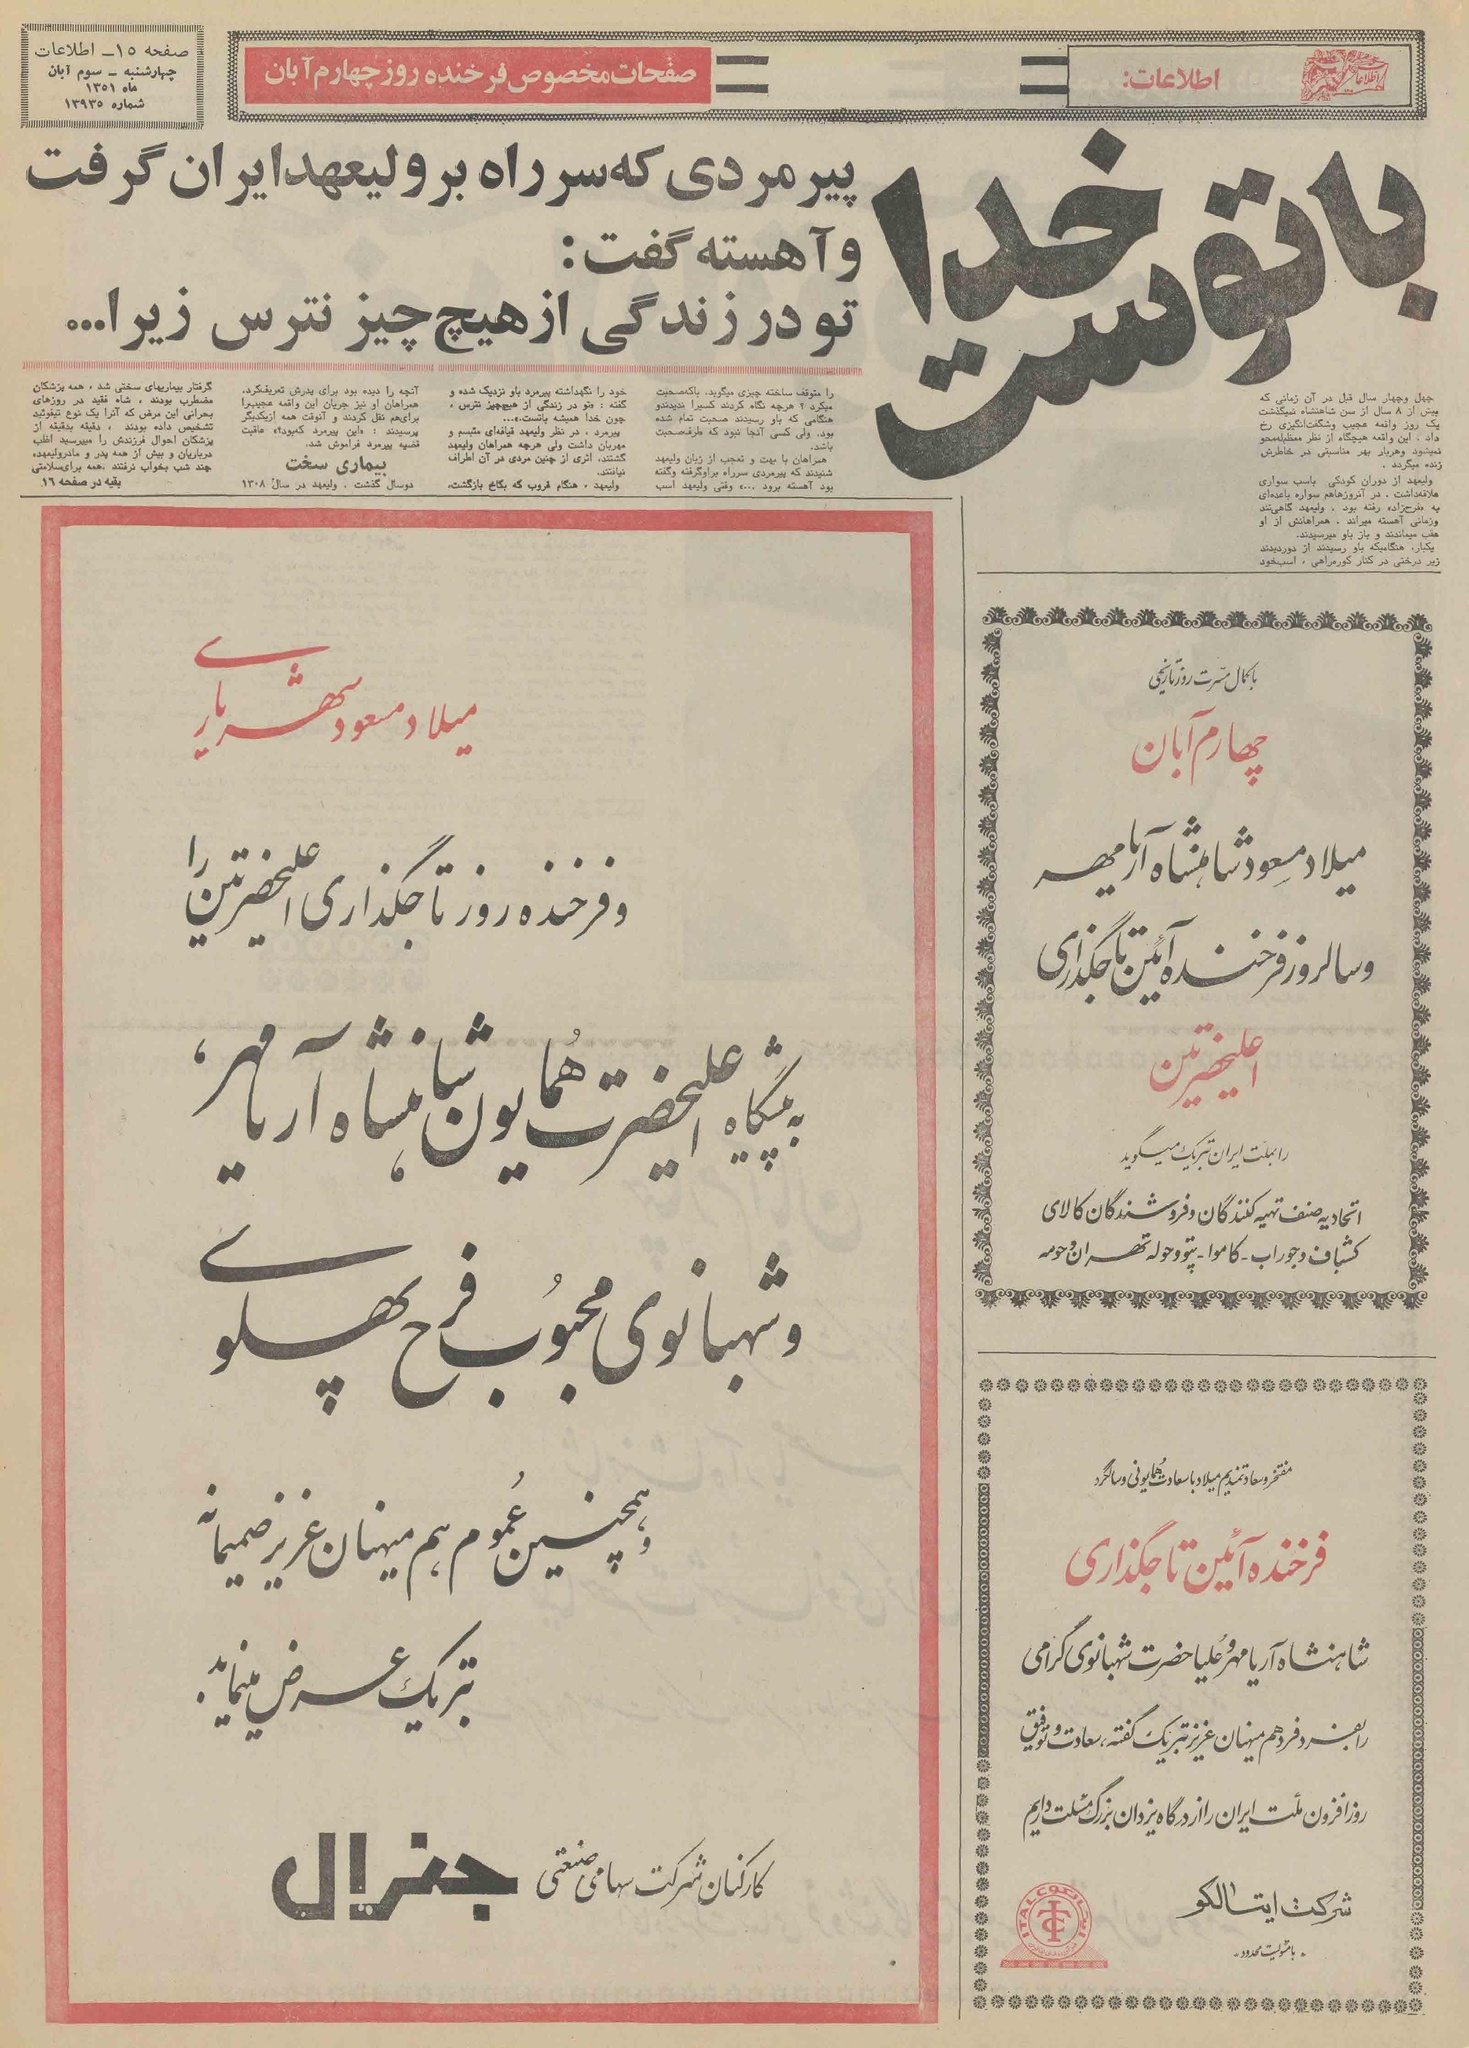 صفحه ۱۵ـ اطلاعات
چهارشنبه ـ سوم آبان
ماه ۱۳۵۱
شماره ۱۳۹۳۵
صفحات مخصوص فرخنده روز چهارم آبان
اطلاعات:
با توست
خدا
پیرمردی که سر راه بر ولیعهد ایران گرفت
و آهسته گفت:
تو در زندگی از هیچ چیز نترس زیرا...
چهل وچهار سال قبل در آن زمانی که
بیش از ۸ سال از سن شاهنشاه نمیگذشت
یک روز واقعه عجیب وشگفت‌انگیزی رخ
داد . این واقعه هیچگاه از نظر معظم‌له‌محو
نمیشود وهربار بهر مناسبتی در خاطرش
زنده میگردد .
ولیعهد از دوران کودکی باسب سواری
علاقه‌داشت . در آنروزهاهم سواره باعده‌ای
به «فرح‌زاد» رفته بود . ولیعهد گاهی‌تند
وزمانی آهسته میراند . همراهانش از او
عقب میماندند و باز باو میرسیدند.
یکبار، هنگامیکه باو رسیدند از دوردیدند
زیر درختی در کنار کوره‌راهی ، اسب‌خود
را متوقف ساخته چیزی میگوید. باکه‌صحبت
میکرد ؟ هرچه نگاه کردند کسیرا ندیدندو
هنگامی که باو رسیدند صحبت تمام شده
بود. ولی کسی آنجا نبود که طرف‌صحبت
باشد.
همراهان با بهت و تعجب از زبان ولیعهد
شنیدند که پیرمردی سرراه براوگرفته وگفته
بود آهسته برود ...» وقتی ولیعهد اسب
خود را نگهداشته پیرمرد باو نزدیک شده و
گفته : «تو در زندگی از هیچ‌چیز نترس ،
چون خدا همیشه باتست.»...
پیرمرد ، در نظر ولیعهد قیافه‌ای متبسم و
مهربان داشت ولی هرچه همراهان ولیعهد
گشتند، اثری از چنین مردی در آن اطراف
نیافتند.
ولیعهد ، هنگام غروب که بکاخ بازگشت،
آنچه را دیده بود برای پدرش تعریف‌کرد.
همراهان او نیز جریان این واقعه عجیب‌را
برای‌هم نقل کردند و آنوقت همه ازیکدیگر
پرسیدند : «این پیرمرد که‌بود؟» عاقبت
قضیه پیرمرد فراموش شد.
بیماری سخت
دوسال گذشت . ولیعهد در سال ۱۳۰۸
گرفتار بیماریهای سختی شد ، همه پزشکان
مضطرب بودند ، شاه فقید در روزهای
بحرانی این مرض که آنرا یک نوع تیفوئید
تشخیص داده بودند ، دقیقه بدقیقه از
پزشکان احوال فرزندش را میپرسید اغلب
درباریان و بیش از همه پدر و مادرولیعهد،
چند شب بخواب نرفتند .همه برای‌سلامتی
بقیه در صفحه ۱۶
باکمال مسرت روز تاریخی
چهارم آبان
میلاد مسعود شاهنشاه آریامهر
و سالروز فرخنده آئین تاجگذاری
اعلیحضرتین
را بملت ایران تبریک میگوید
اتحادیه صنف تهیه کنندگان و فروشندگان کالای
کشباف و جوراب ـ کاموا ـ پتو و حوله تهران و حومه
مفتخر و سعادتمندیم میلاد با سعادت همایونی و سالگرد
فرخنده آئین تاجگذاری
شاهنشاه آریامهر و علیاحضرت شهبانوی گرامی
را بفرد فرد هم میهنان عزیز تبریک گفته، سعادت و توفیق
روزافزون ملت ایران را از درگاه یزدان بزرگ مسئلت داریم
شرکت ایتالکو
ـ با مسئولیت محدود ـ
ایتالکو
ITALCO
میلاد مسعود شهریاری
و فرخنده روز تاجگذاری اعلیحضرتین را
به پیشگاه اعلیحضرت همایون شاهنشاه آریامهر،
و شهبانوی محبوب فرح پهلوی
و همچنین عموم هم میهنان عزیز صمیمانه
تبریک عرض مینماید.
کارکنان شرکت سهامی صنعتی جنرال